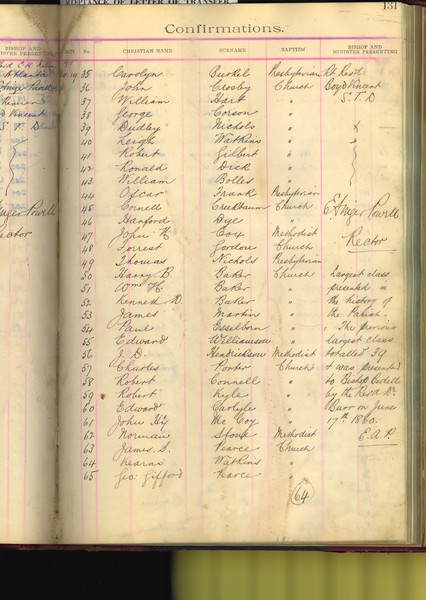 ACCEPTANCE OF LETTER OF TRANSFER
131
Confirmations.
BISHOP AND
MINISTER PRESENTING
No.
CHRISTIAN NAME
SURNAME
BAPTISM
BISHOP AND
MINISTER PRESENTING
35 Carolyn Presbyterian Rt Revd
36 John Crosby Church Boyd Vincent
37 William Hart " S. T. D
38 George Corson "
39 Dudley Nichols "
40 Leigh Watkins "
41 Robert Gilbert "
42 Ronald Dick "
43 William Bolles "
44 Oscar Frank Presbyterian
45 Cornell Church
46 Hanford Dye "
47 John H Cox Methodist
48 Forrest Gordon Church Rector
49 Thomas Nichols Presbyterian
50 Harry B Baker Church Largest class
51 Wm H Baker " presented in
52 Kenneth D Baker " the history of
53 James Martin " the Parish.
54 Paul Esselborn " The previous
55 Edward Williamson " largest class
56 J. D. Hendrickson Methodist totalled 39
57 Charles Porter Church & was presented
58 Robert Connell " to Bishop Bedell
59 Robert Kyle " by the Revd Dr
60 Edward Carlyle " Burr on June
61 John Mc Coy " 17th 1860.
62 Norman Methodist E. A. P.
63 James S. Pearce Church
64 Watkins "
65 Geo: Gifford Pearce "
64
Rector